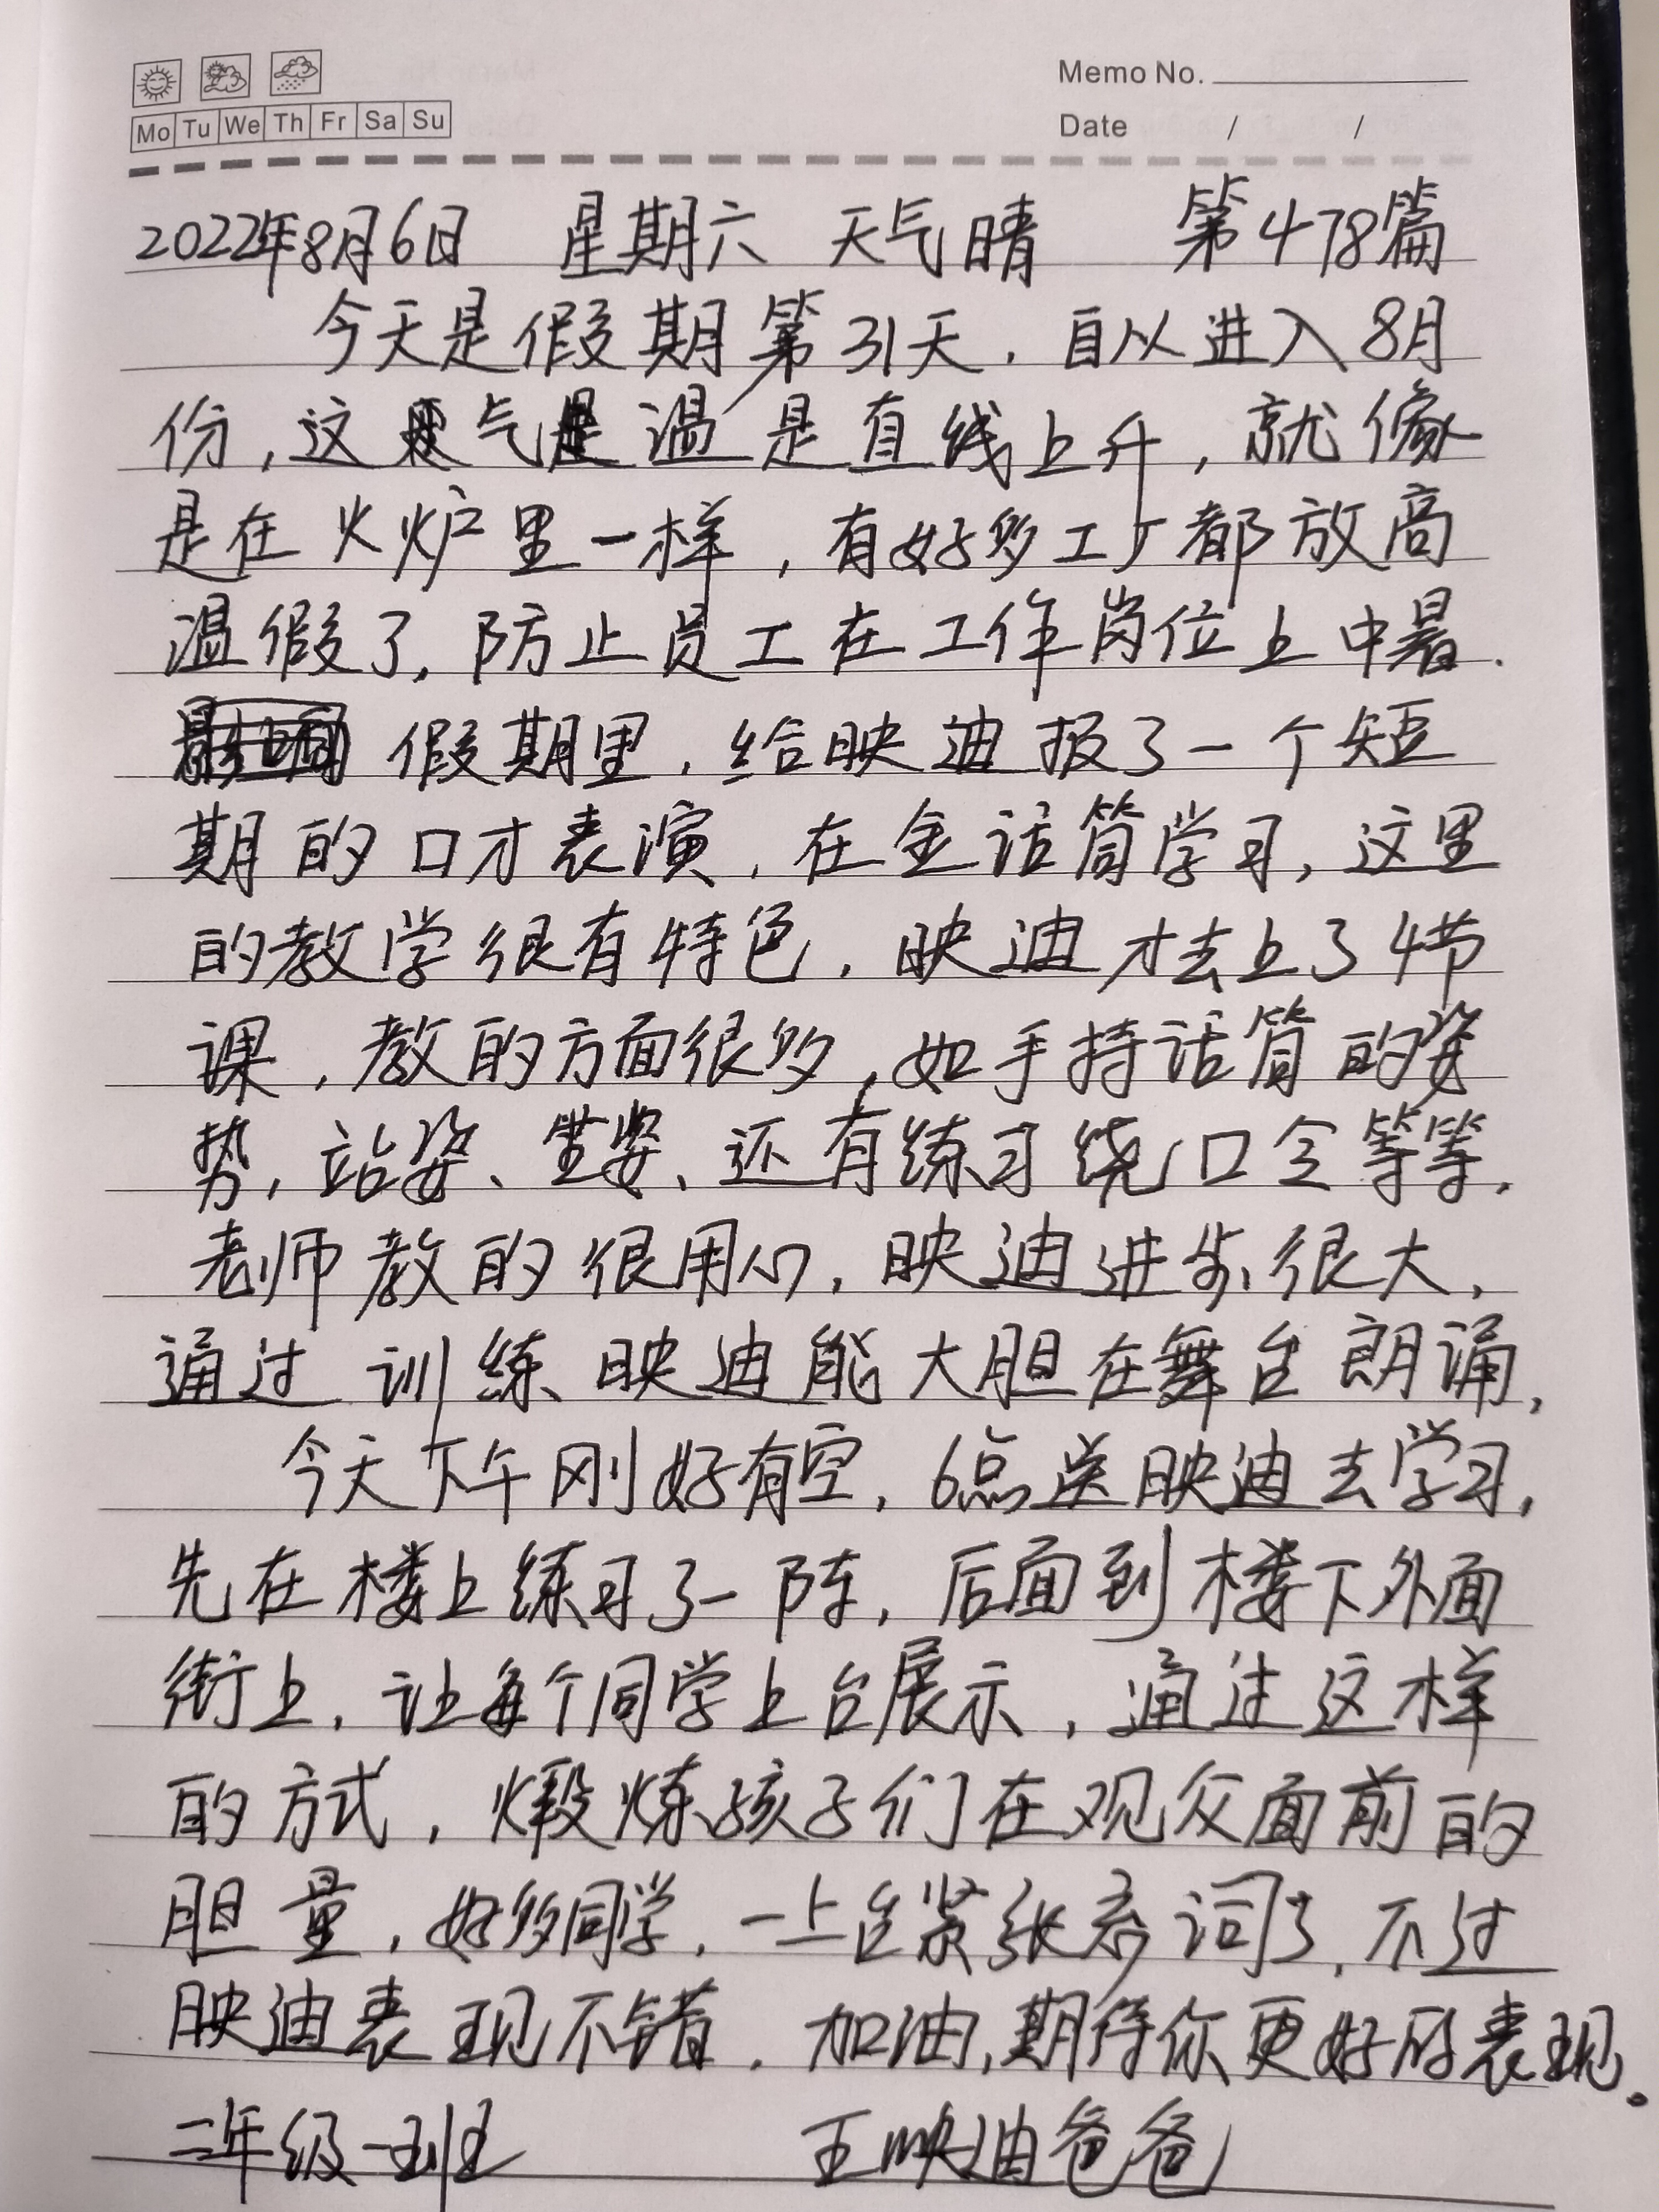 Memo No.
Mo Tu We Th Fr Sa Su
Date / /
2022年8月6日 星期六 天气晴 第478篇
今天是假期第31天，自从进入8月
份，这气温是直线上升，就像
是在火炉里一样，有好多工厂都放高
温假了，防止员工在工作岗位上中暑.
假期里，给映迪报了一个短
期的口才表演，在金话筒学习，这里
的教学很有特色，映迪才去上了4节
课，教的方面很多，如手持话筒的姿
势，站姿、坐姿、还有练习绕口令等等，
老师教的很用心，映迪进步很大，
通过训练映迪能大胆在舞台朗诵，
今天下午刚好有空，6点送映迪去学习，
先在楼上练习了一阵，后面到楼下外面
街上，让每个同学上台展示，通过这样
的方式，煅炼孩子们在观众面前的
胆量，好多同学，一上台紧张忘词了，不过
映迪表现不错，加油，期待你更好的表现。
二年级一班 王映迪爸爸